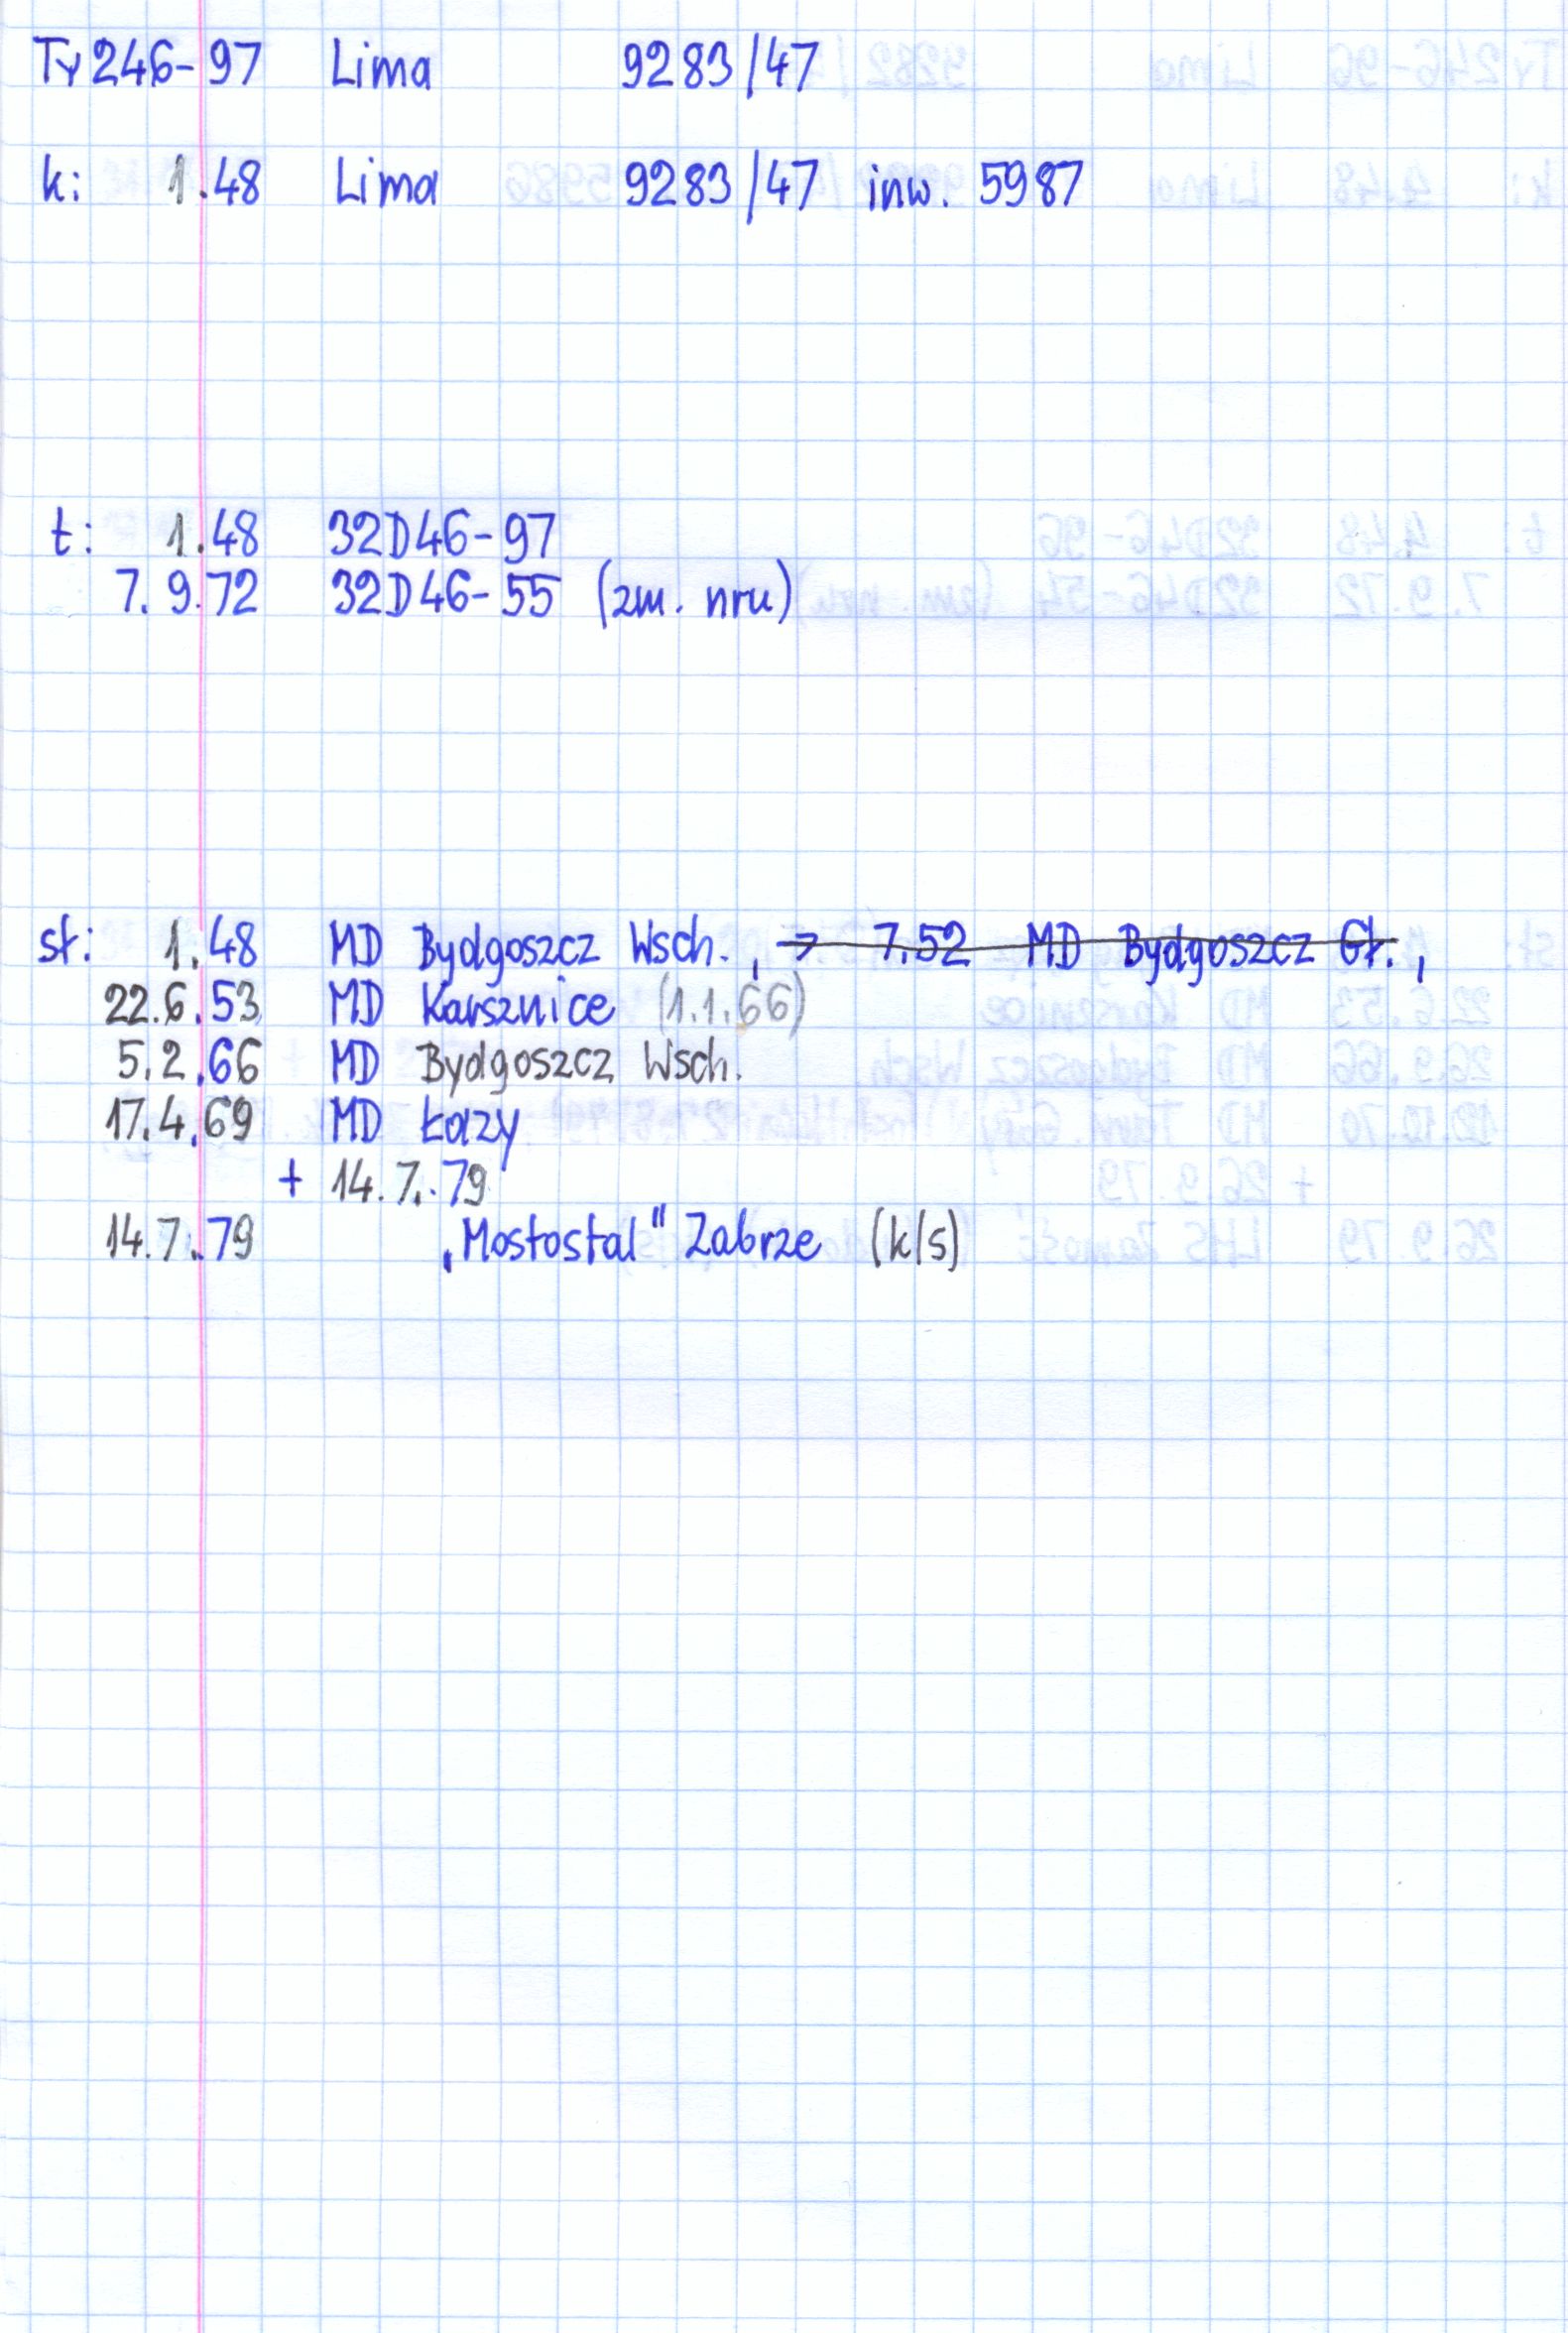 Ty246-97 Lima 9283/47
k: 1.48 Lima 9283/47 inw. 5987
t: 1.48 32D46-97
7.9.72 32D46-55 (zm. nru)
st: 1.48 MD Bydgoszcz Wsch., → 7.52 MD Bydgoszcz Gł.,
22.6.53 MD Karsznice (1.1.66)
5.2.66 MD Bydgoszcz Wsch.
17.4.69 MD Łazy
+ 14.7.79
14.7.79 „Mostostal" Zabrze (k/s)